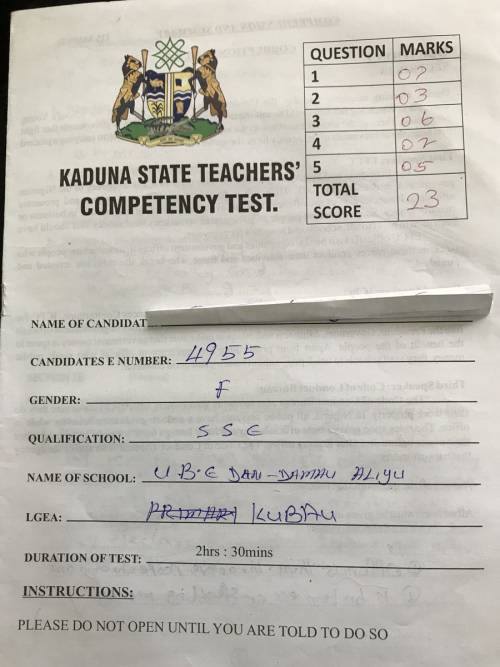 QUESTION MARKS
1 07
2 03
3 06
4 02
5 05
TOTAL SCORE 23
KADUNA STATE TEACHERS'
COMPETENCY TEST.
NAME OF CANDIDAT
CANDIDATES E NUMBER: 4955
GENDER: F
QUALIFICATION: SSE
NAME OF SCHOOL: U B.E DAN-DAMAU ALIYU
LGEA: PRIMARY KUBAU
DURATION OF TEST: 2hrs : 30mins
INSTRUCTIONS:
PLEASE DO NOT OPEN UNTIL YOU ARE TOLD TO DO SO